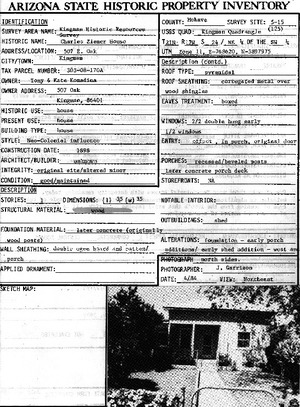 ARIZONA STATE HISTORIC PROPERTY INVENTORY
IDENTIFICATION
SURVEY AREA NAME: Kingman Historic Resources
Survey
HISTORIC NAME: Charles Ziemer House
ADDRESS/LOCATION: 507 E. Oak
CITY/TOWN: Kingman
TAX PARCEL NUMBER: 303-08-170A
OWNER: Tony & Kate
OWNER ADDRESS: 507 Oak
Kingman, 86401
HISTORIC USE: house
PRESENT USE: house
BUILDING TYPE: house
STYLE: Neo-Colonial influence
CONSTRUCTION DATE: 1898
ARCHITECT/BUILDER: unknown
INTEGRITY: original site/altered minor
CONDITION: good/maintained
DESCRIPTION
STORIES: 1 DIMENSIONS: (l) 35 (w) 35
STRUCTURAL MATERIAL: wood
FOUNDATION MATERIAL: later concrete (originally
wood posts)
WALL SHEATHING: board and batten/
porch
APPLIED ORNAMENT:
SKETCH MAP:
COUNTY: Mohave SURVEY SITE: S-15
USGS QUAD: Kingman Quadrangle (125)
T 21N; R 17W S 24 / NW ¼ OF THE SW ¼
UTM Zone 11,
Description (contd.)
ROOF TYPE: pyramidal
ROOF SHEATHING: corrugated metal over
wood shingles
EAVES TREATMENT: boxed
WINDOWS: 2/2 double hung early
1/2 windows
ENTRY: offset, in porch, original door
PORCHES: recessed/beveled posts
later concrete porch deck
STOREFRONTS: NA
NOTABLE INTERIOR:
OUTBUILDINGS: shed
ALTERATIONS: foundation - early porch
additions/ early shed addition - west and
north sides.
PHOTOGRAPH
PHOTOGRAPHER: J. Garrison
DATE: 4/84 VIEW: Northeast